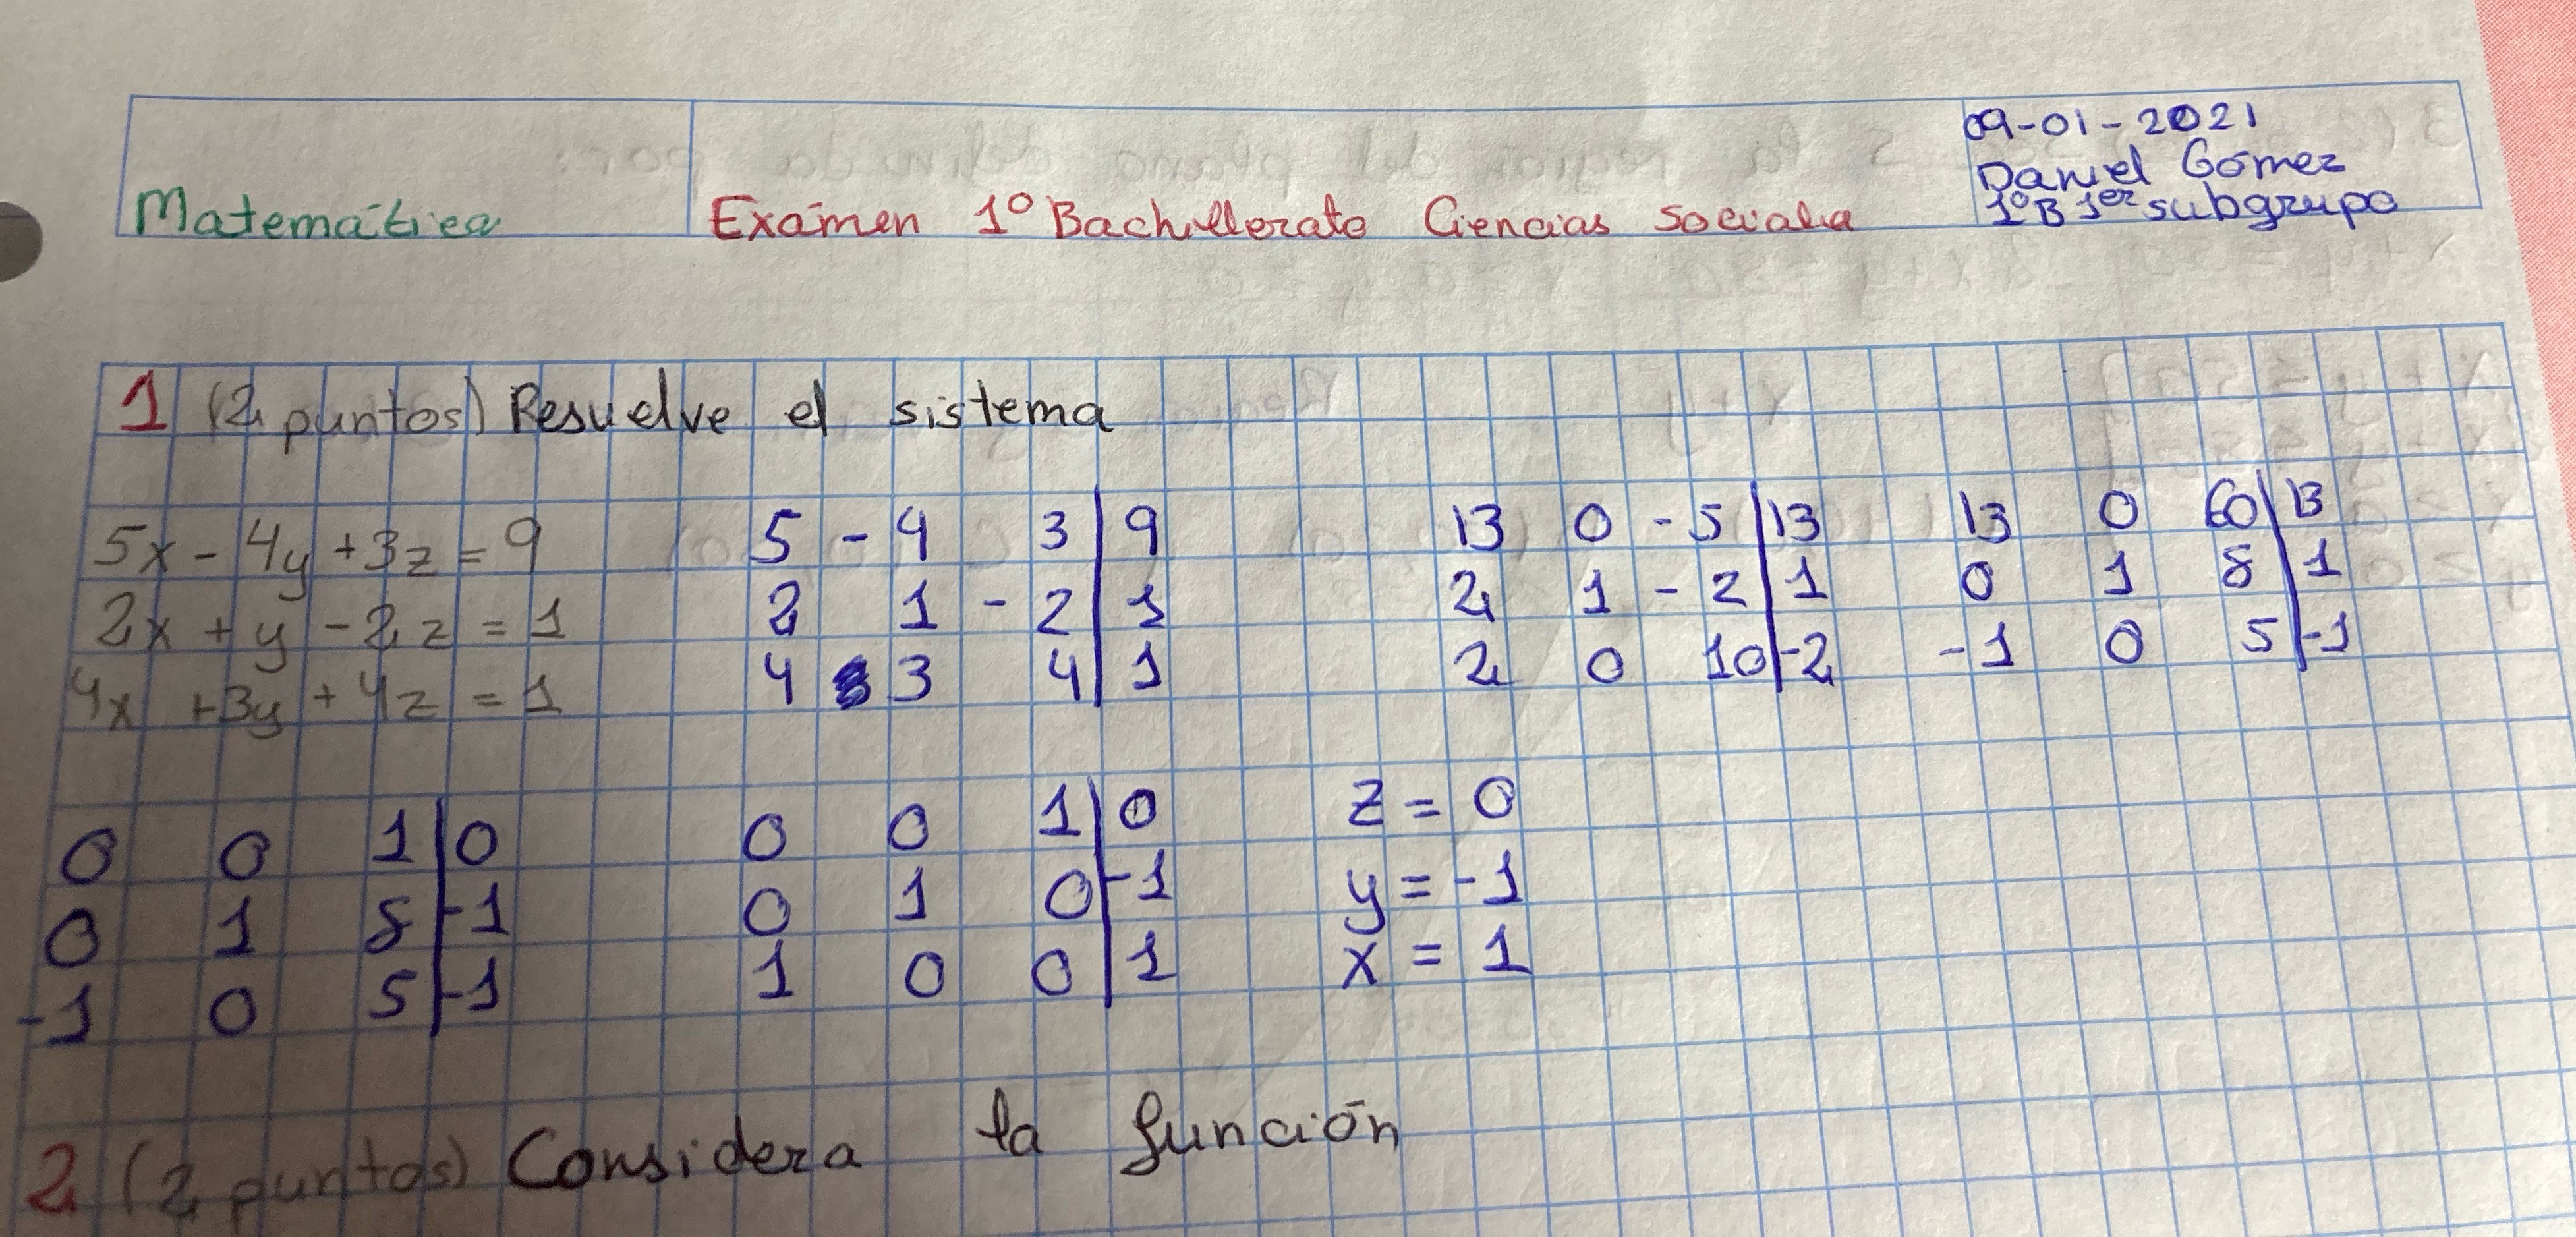 Matemática
Exámen 1º Bachillerato Ciencias Sociales
09-01-2021
Daniel Gómez
1ºB 1er subgrupo
1 (2 puntos) Resuelve el sistema
5x - 4y + 3z = 9
2x + y - 2z = 1
4x + 3y + 4z = 1
5 -4 3 | 9
2 1 -2 | 1
4 3 4 | 1
13 0 -5 | 13
2 1 -2 | 1
2 0 10 | -2
13 0 60 | 13
0 1 8 | 1
-1 0 5 | -1
0 0 1 | 0
0 1 8 | -1
-1 0 5 | -1
0 0 1 | 0
0 1 0 | -1
1 0 0 | 1
z = 0
y = -1
x = 1
2 (2 puntos) Considera la función